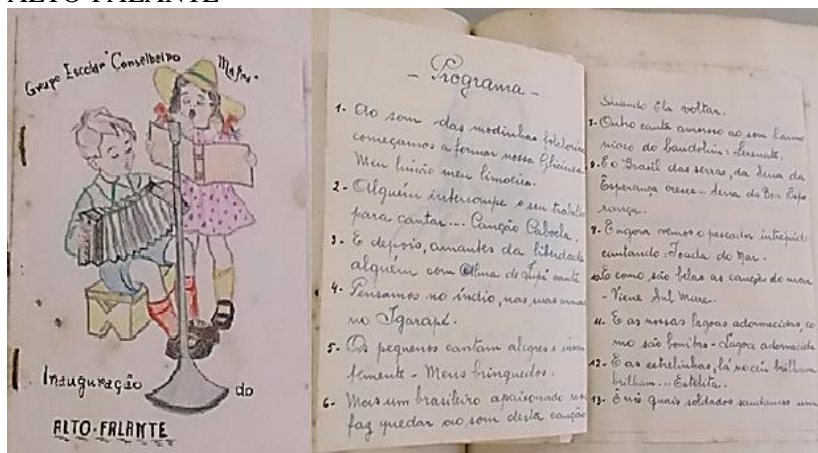 ALTO FALANTE
Grupo Escolar "Conselheiro Mafra"
Inauguração do
ALTO-FALANTE
- Programa -
1- Ao som das modinhas folclóricas
começamos a formar nossa
Meu limão meu limoeiro.
2- Alguém interrompe o seu trabalho
para cantar... Canção Cabocla.
3- E depois, amantes da liberdade
alguém com Alma de Tupi canta
4- Pensamos no índio, nas suas
no Igarapé.
5- Os pequenos cantam alegres e
temente - Meus brinquedos.
6- Mais um brasileiro apaixonado
faz quedar ao som desta canção
Quando Ela voltar.
Outro canta amoroso ao som harmo
nioso do bandolim: Serenata.
E o Brasil das serras, da Serra da
Esperança cresce - Serra da Boa Espe
rança.
9- E agora vemos o pescador intrépido
cantando: do Mar.
como são belas as canções do mar
- Viene Sul Mare.
11. E as nossas lagoas adormecidas, co
mo são bonitas - Lagoa adormecida
12- E as estrelinhas, lá no céu brilham
brilham... Estelita.
13- E nós quais soldados saudamos